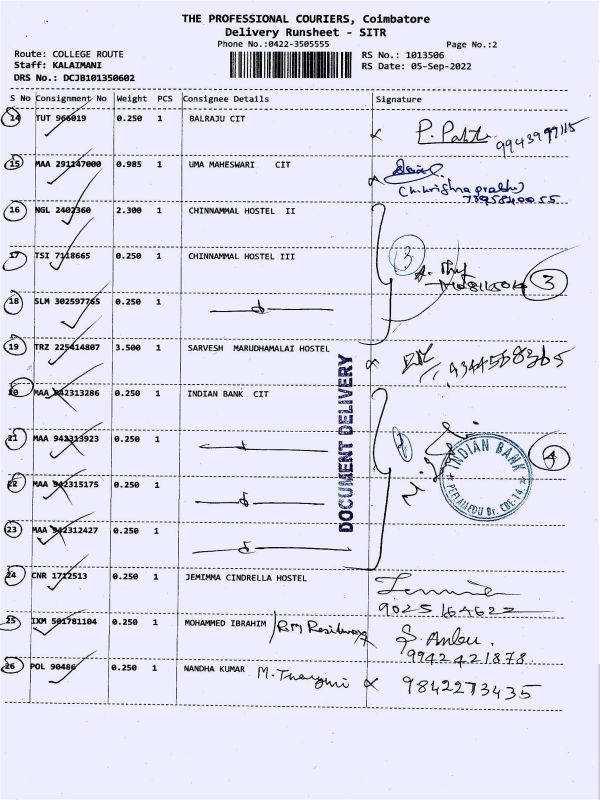 THE PROFESSIONAL COURIERS, Coimbatore
Delivery Runsheet - SITR
Phone No.:0422-3505555 Page No.:2
Route: COLLEGE ROUTE RS No.: 1013506
Staff: KALAIMANI RS Date: 05-Sep-2022
DRS No.: DCJB101350602
S No Consignment No Weight PCS Consignee Details Signature
14 TUT 966019 0.250 1 BALRAJU CIT
9943997115
15 MAA 291147000 0.985 1 UMA MAHESWARI CIT
16 NGL 2402360 2.300 1 CHINNAMMAL HOSTEL II
17 TSI 7118665 0.250 1 CHINNAMMAL HOSTEL III
3 3
18 SLM 302597765 0.250 1
19 TRZ 225414807 3.500 1 SARVESH MARUDHAMALAI HOSTEL
9344568365
20 MAA 942313286 0.250 1 INDIAN BANK CIT
21 MAA 942313923 0.250 1
4
INDIAN BANK
PEELAMEDU Br. CBE-14.
DOCUMENT DELIVERY
22 MAA 942315175 0.250 1
23 MAA 942312427 0.250 1
24 CNR 1712513 0.250 1 JEMIMMA CINDRELLA HOSTEL
9025164622
25 IXM 501781104 0.250 1 MOHAMMED IBRAHIM
S. Anbu.
9942421878.
26 POL 90486 0.250 1 NANDHA KUMAR
9842273435